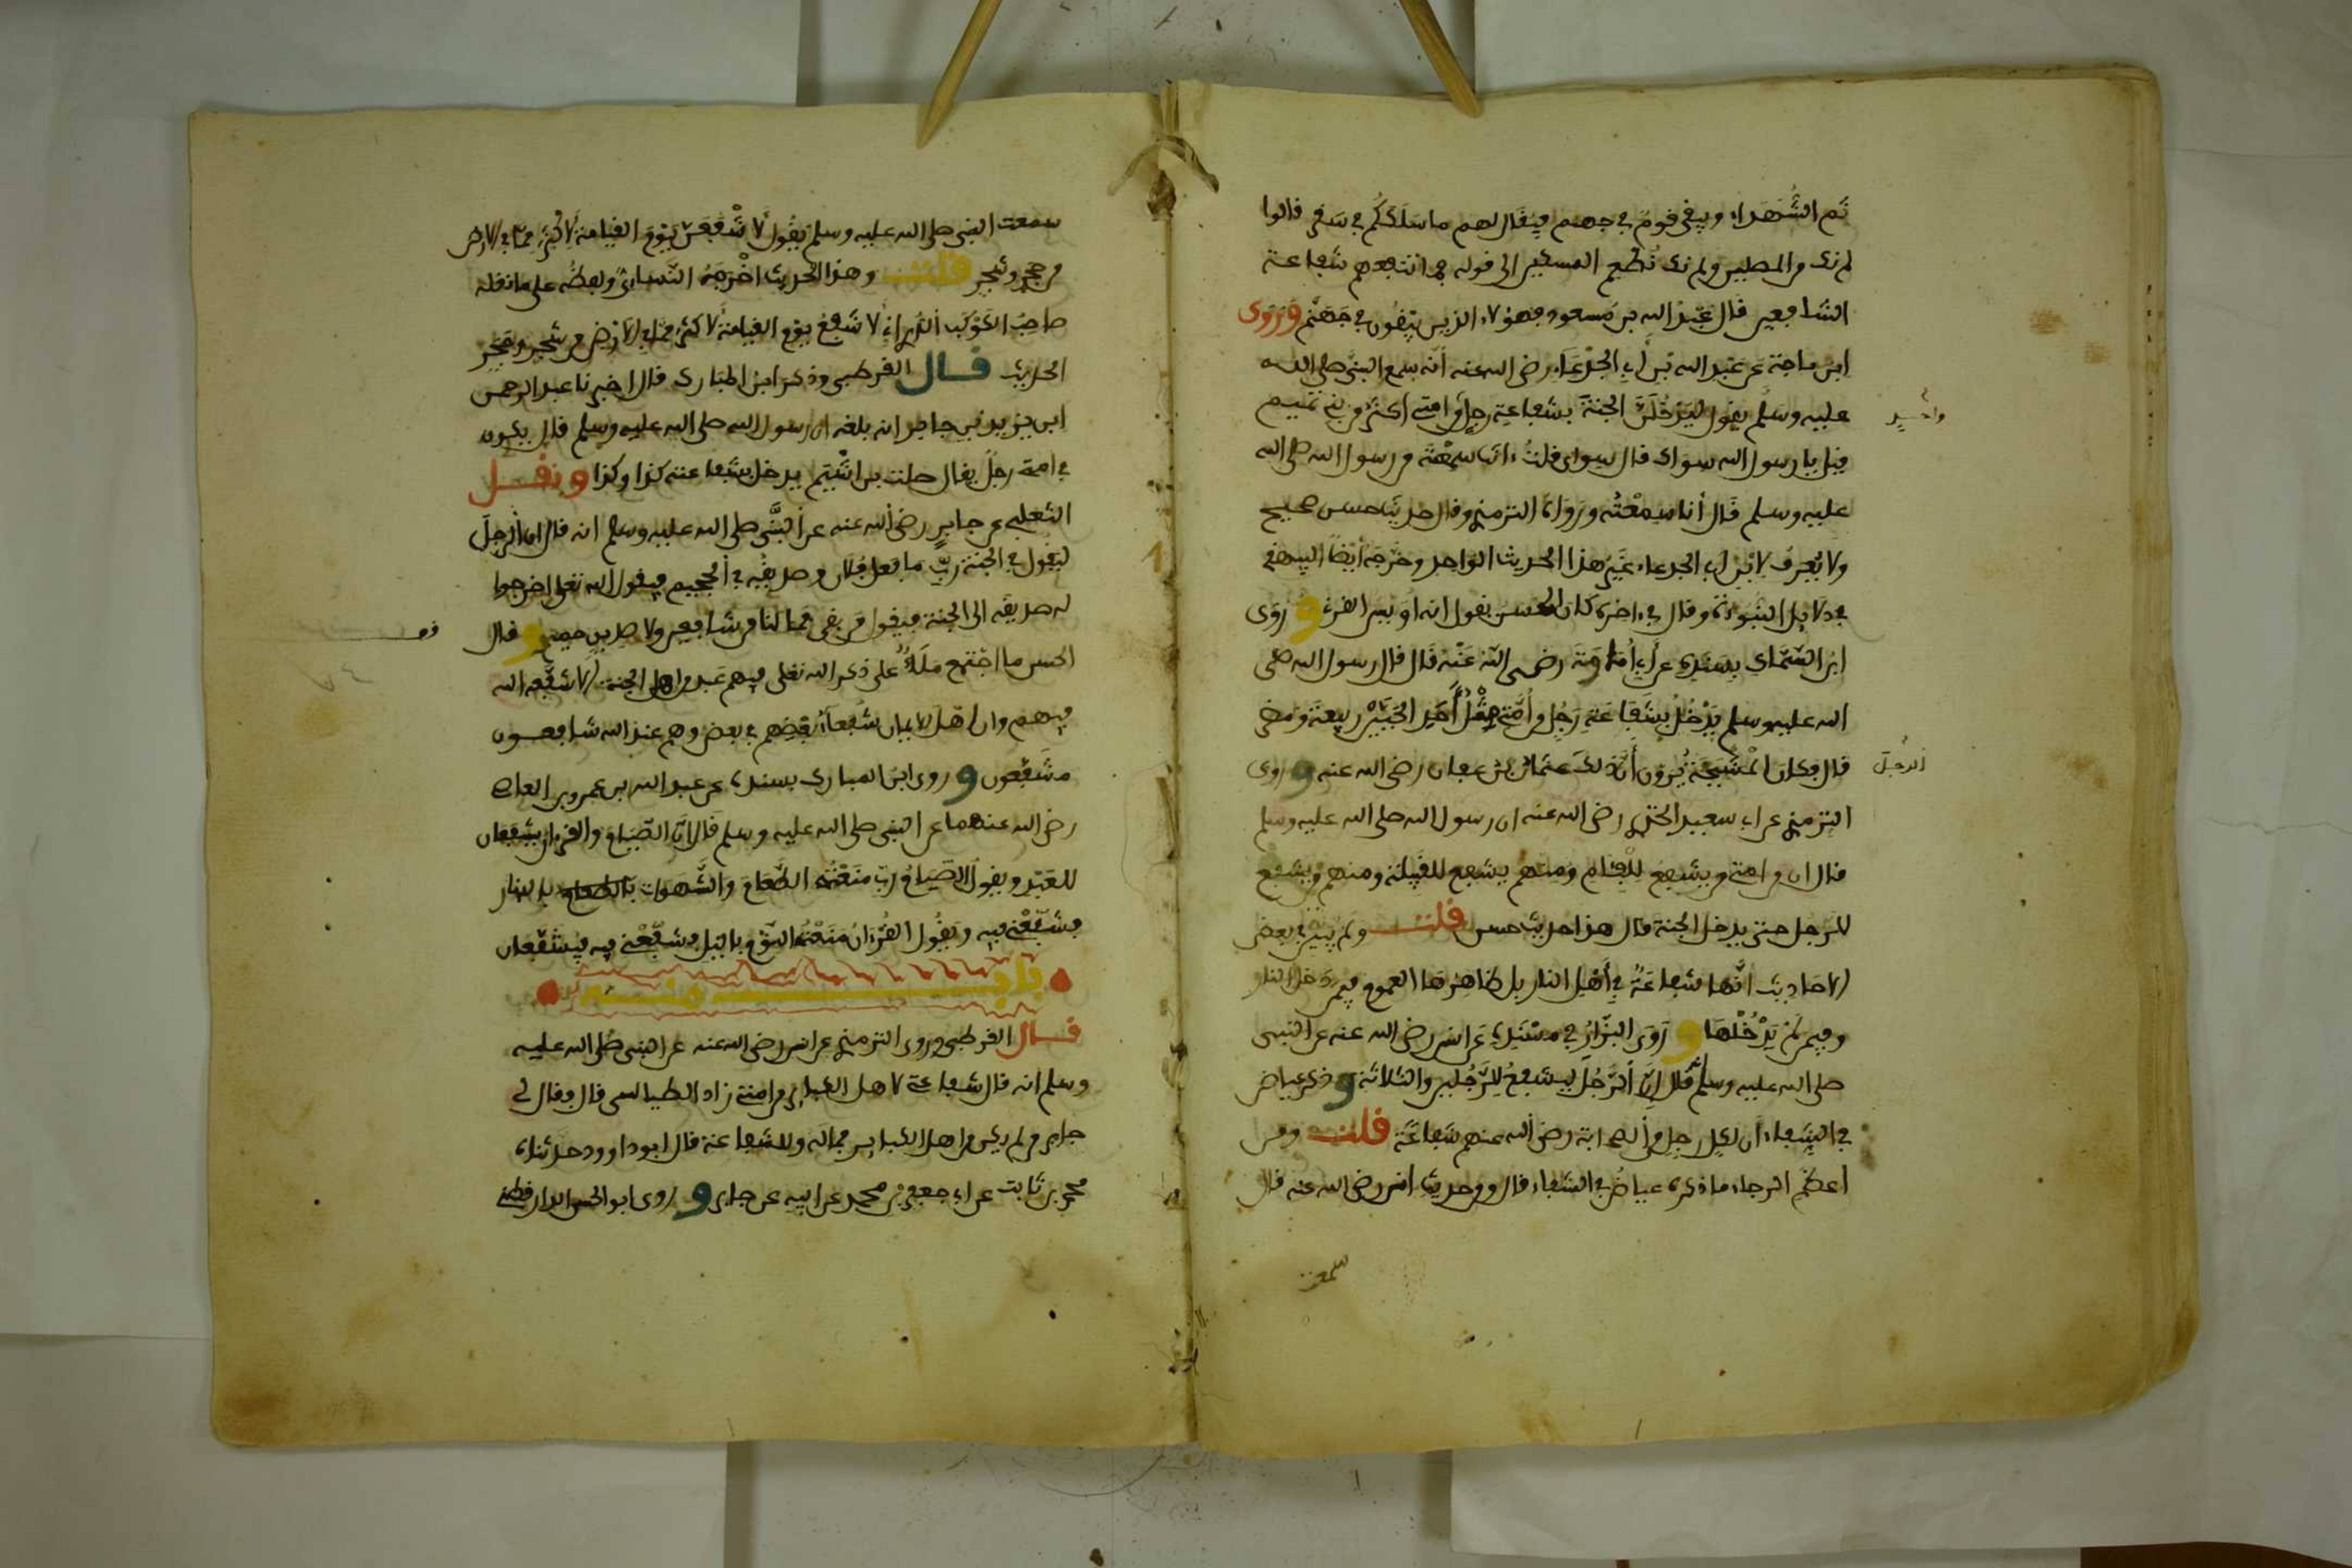 ثم الشُّهَدَاء ويبقى قومٌ في جهنم فيقال لهم ما سَلَكَكُمْ في سَقَر قالوا
لم نك من المصلين ولم نك نُطْعِم المسكين إلى قوله فما تنفعهم شفاعة
الشافعين قال عبدُ الله بن مسعود فهؤلاء الذين يبقون في جَهَنَّم وَرَوَى
ابن ماجة عن عَبْد الله بن أبي الجَدْعَاء رضي الله عنه أنه سمع النبي صلى الله
عليه وسلم يقول لَيَدْخُلَنَّ الجنةَ بشفاعةِ رجلٍ من امتي أكثرُ من بني تميم
قيل يا رسول الله سواك قال سواي قلتُ ءانت سمعتَه من رسول الله صلى الله
عليه وسلم قَال أنا سَمِعْتُه ورَوَاهُ الترمذي وقال حديث حسن صحيح
ولا يُعْرَفُ لابن أبي الجدعاء غَيْرُ هذا الحديث الواحد وخرّجه أيضًا البيهقي
في دلايل النبوءة وقال في ءاخره كان الحسن يقول انه أويس القرني وروَى
ابن السَّمّاك بِسَنَدِه عن أبي أمامة رضي الله عَنْه قال قال رسول الله صلى
الله عليه وسلم يَدْخُلُ بشَفَاعَةِ رَجُلٍ من أُمّتي مِثْلُ أَحَدِ الحَيَّيْنِ ربيعَةَ ومُضَر
قال فكان المَشْيَخَةُ يُرَوْنَ أنّ ذلك عثمانُ بنُ عفان رضي الله عنه وروى
الترمذي عن أبي سعيد الخدري رضي الله عنه ان رسول الله صلى الله عليه وسلم
قال ان من امتي من يشفع للفِئام ومنهم من يشفع للقبيلة ومنهم من يشفع
للرجل حتى يدخل الجنة قال هذا حديث حسن قلت ولم يُبَيَّن في بعض
الاحاديث انّها شفاعَةٌ في أهْل النار بل ظاهِرُها العموم فيمن دخل النار
وفيمن لم يَدْخُلْهَا وَرَوَى البزّارُ في مسْنَدِه عن انس رضي الله عنه عن النبي
صلى الله عليه وسلم قال إنّ الرّجُلَ ليشفعُ للرّجُلين والثلاثة وذكر عياض
في الشِّفاء أن لكل رجلٍ من الصحابة رضي الله عنهم شفاعَةً قلت ومن
اعظم الرجاء ما ذكره عياضٌ في الشفاء قال ومن حديث أنس رضي الله عنه قال
سمعت
الرجُلَ
سمعت النبي صلى الله عليه وسلم يقول لأَشْفَعَنَّ يَوْمَ القيامة لأكثرَ ممّا في الارض
من حجرٍ وشجر قلت وهذا الحديث اخْرَجَهُ النّسائيّ ولفظُه على ما نقله
صاحِبُ الكَوْكَب الدُّرِيّ إنّي لأشفعُ يوم القيامة لأكثرَ مما في الأرض من شجرٍ وحَجَر
الحديث قال القرطبي وذكر ابنُ المبارك قال اخبرنا عبد الرحمن
ابن يزيد بن جابر انه بلغه ان رسول الله صلى الله عليه وسلم قال يكون
في امتي رجلٌ يقال صلت بن أشْيَم يدخل بشفاعته كذا وكذا ونقل
الثعلبي عن جابرٍ رضي الله عنه عن النبي صلى الله عليه وسلم انه قال ان الرجلَ
ليقول في الجنة ربّ ما فعل فلان وصديقُه في الجحيم فيقول الله تعلى اخرجوا
له صديقَه الى الجنة فيقول من بقي فما لنا من شافعين ولا صديقٍ حميمٍ وقال
الحسن ما اجْتَمع مَلَأٌ على ذكر الله تعلى فيهم عَبدٌ من اهل الجنة إلا شفّعه الله
فيهم وان أهل الايمان شُفعاءُ بَعْضِهم في بعض وهم عند الله شافعون
مشَفّعون وروى ابن المبارك بسنده عن عبد الله بن عمرو بن العاص
رضي الله عنهما عن النبي صلى الله عليه وسلم قال إنّ الصّيام والقرءان يشفعان
للعَبْد ويقول الصّيامُ ربّ منعْتُه الطّعامَ والشّهوات بالنهار
فشَفِّعْنِي فيه ويقُولُ القُرْءانُ منعْتُه النّوْمَ بالليل فشفِّعْني فيه فيُشَفَّعان
باب منه
قال القرطبي وروى الترمذي عن انس رضي الله عنه عن النبي صلى الله عليه
وسلم انه قال شفاعتي لاهل الكباير من امتي زاد الطيالسي قال فقال لي
جابر من لم يكن من اهل الكباير فما له وللشفاعة قال ابو داوود حدثناه
محمد بن ثابت عن جعفر بن محمد عن ابيه عن جابر وروى ابو الحسن الدارقطني